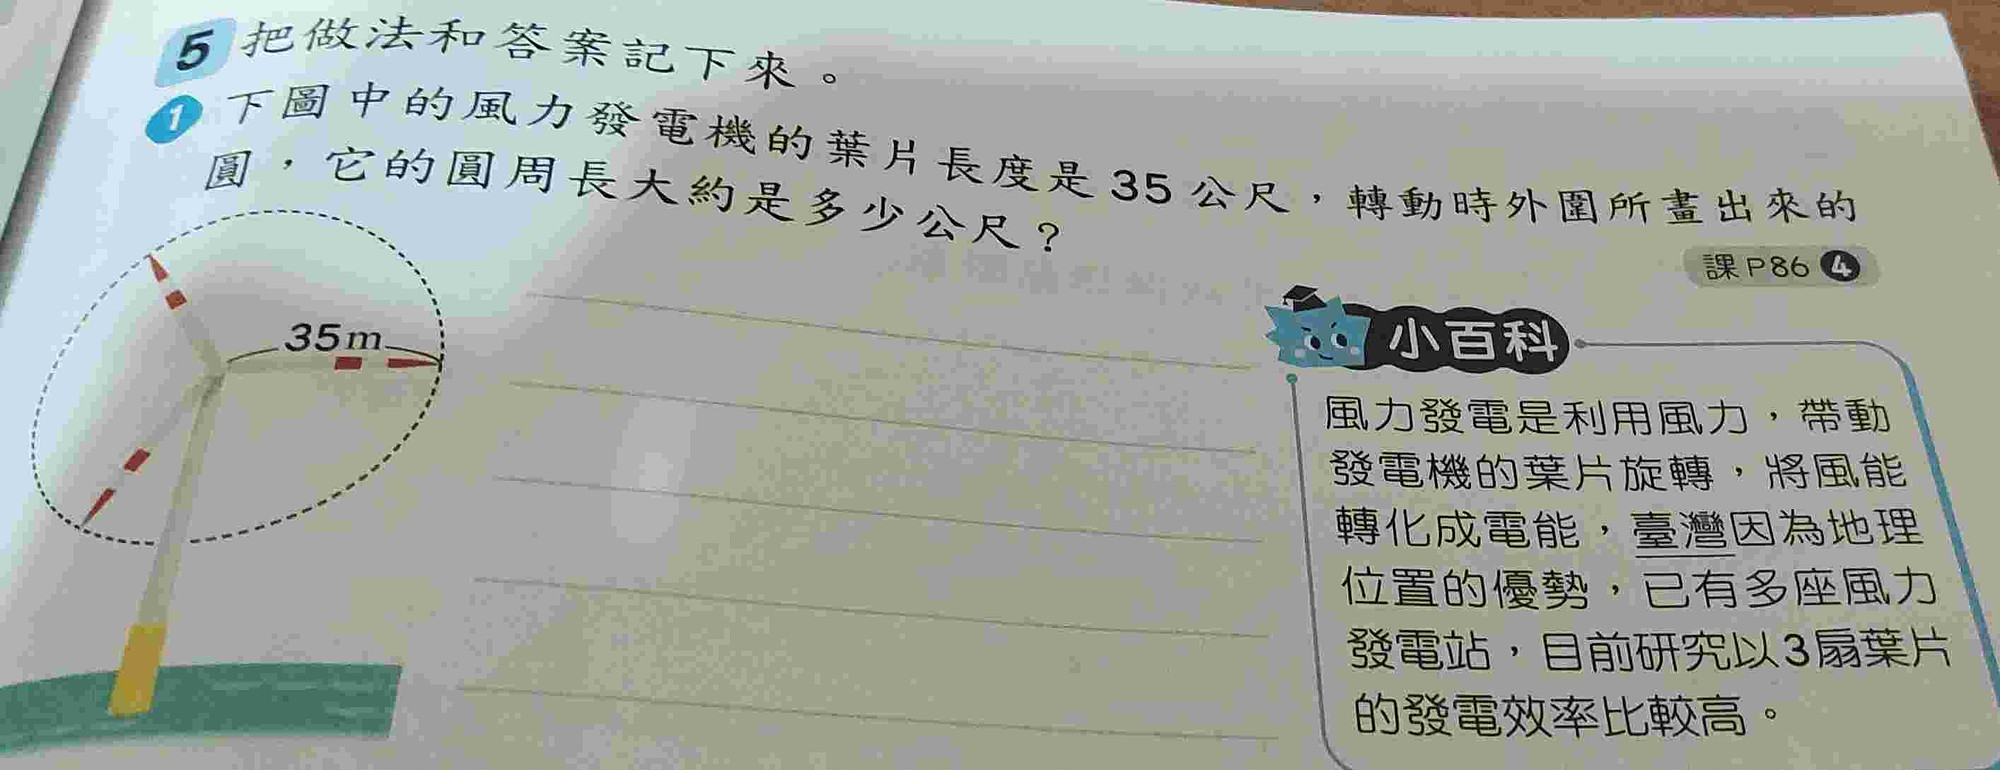 5 把做法和答案記下來。
1 下圖中的風力發電機的葉片長度是35公尺,轉動時外圍所畫出來的
圓,它的圓周長大約是多少公尺?
課P86 4
35m
小百科
風力發電是利用風力,帶動
發電機的葉片旋轉,將風能
轉化成電能,臺灣因為地理
位置的優勢,已有多座風力
發電站,目前研究以3扇葉片
的發電效率比較高。